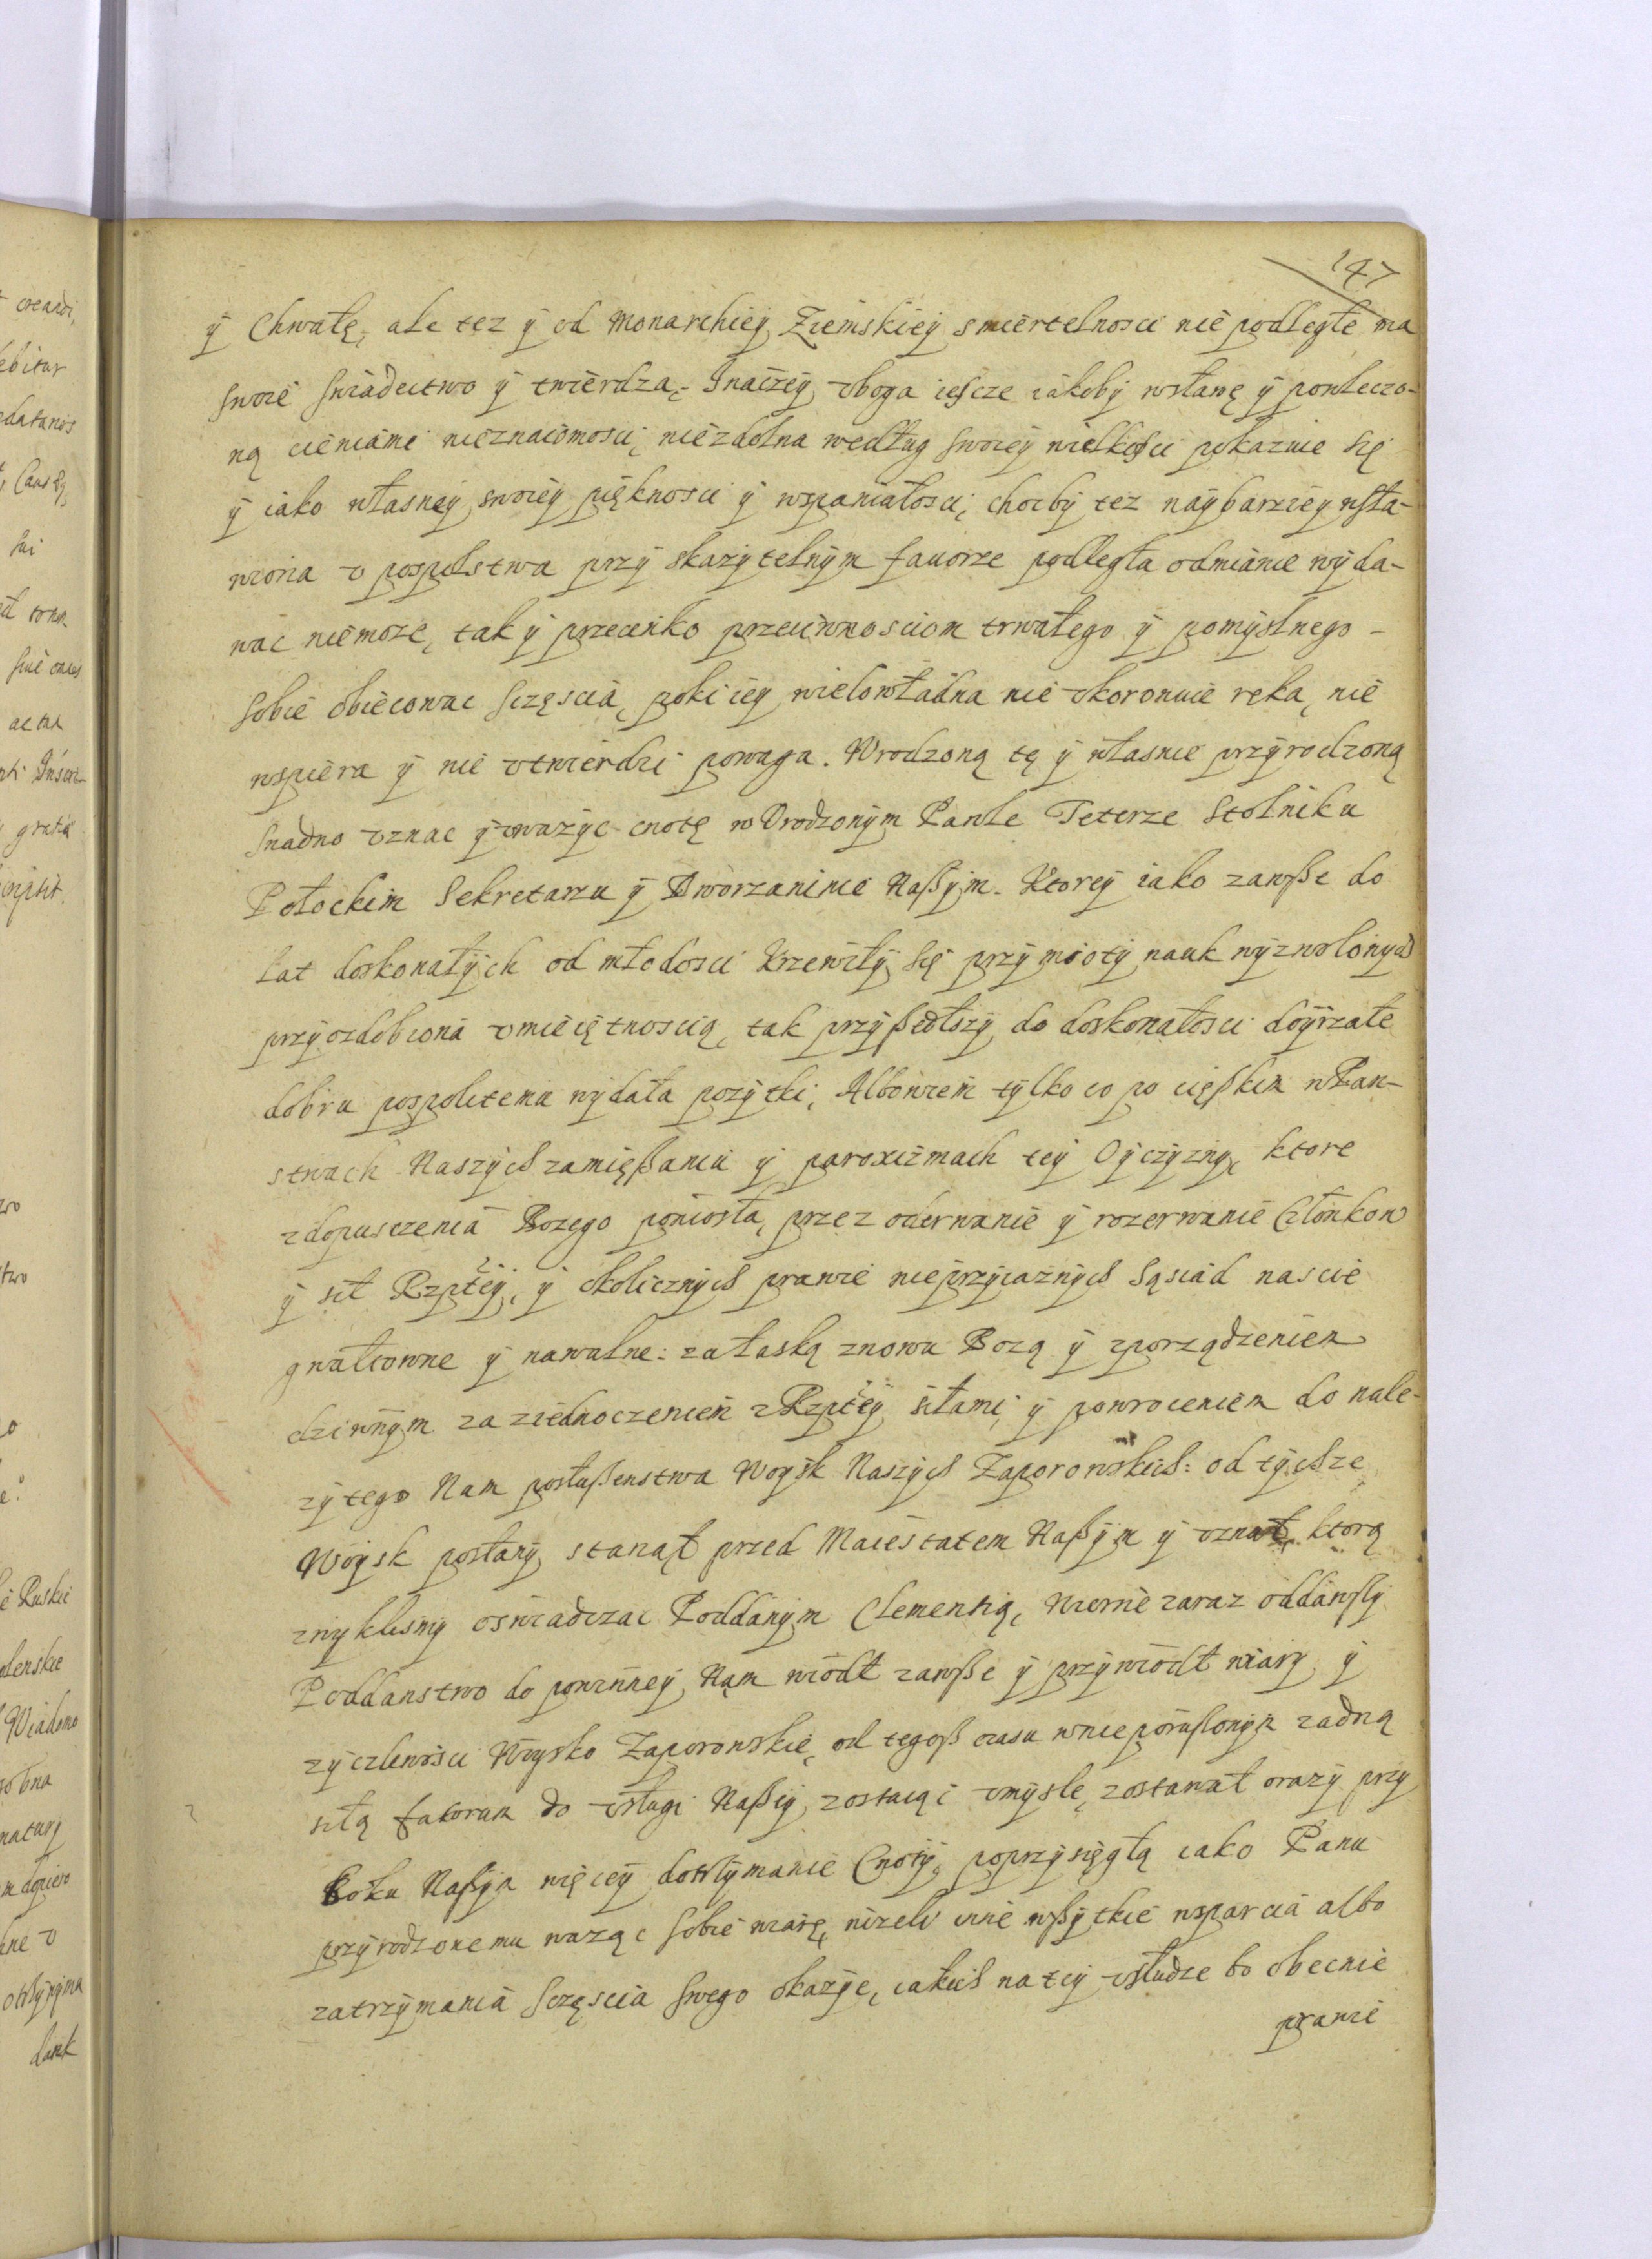 147
ÿ Chwałę, ale tez ÿ od Monarchiey Ziemskiey smiertelnosci nie podległe ma
swoie swiadectwo ÿ twierdzą. Inaczey vboga iescze iakobÿ wsławę ÿ powleczo-
ną cieniami nieznaiomosci, niezdolna według swoiey wielkosci pokazuie się
ÿ iako własney swoiey pięknosci ÿ wspaniałosci, chocbÿ tez naÿbarziey wsła-
wiona v pospolstwa przÿ skazÿtelnÿm fauorze podległa odmianie wÿda-
wac niemoze, tak ÿ przeciwko przeciwnosciom trwałego ÿ pomÿslnego -
sobie obiecowac sczęscia, poki ieÿ wielowładna nie vkoronuie ręka, nie
wspiera ÿ nie vtwierdzi powaga. Wrodzoną tę ÿ własnie przÿrodzoną
snadno vznac ÿ vwazÿc cnotę w Vrodzonÿm Panle Teterze Stolniku
Połockim Sekretarzu ÿ Dworzaninie Naßÿm. Ktoreÿ iako zawße do
lat doskonałÿch od młodosci krzewiłÿ się przÿmiotÿ nauk wÿzwolonÿch
przÿozdobiona vmieiętnoscią, tak przÿßedłszÿ do doskonałosci doÿrzałe
dobru pospolitemu wÿdała pozÿtki, Albowiem tÿlko co po cięßkim w Pan-
stwach Naszÿch zamięßaniu ÿ paroxizmach teÿ Oÿczÿznÿ, ktore
z dopusczenia Bozego poniosła, przez oderwanie ÿ rozerwanie Członkow
ÿ sił Rzpteÿ, ÿ okolicznÿch prawie nieprzÿiaznÿch Sąsiad nascie
gwałtowne ÿ nawalne: za łaską znowu Bozą ÿ zporządzeniem
dziwnÿm za ziednoczeniem z Rzpteÿ siłami, ÿ powroceniem do nale-
zÿtego Nam posłußenstwa Woÿsk Naszÿch Zaporowskich: od tÿchze
Woÿsk posłanÿ stanął przed Maiestatem Naßÿm ÿ vznał, ktorą
zwÿklismÿ oswiadczac Poddanÿm Clementią, Wiernie zaraz oddawsÿ
Poddanstwo do powinneÿ Nam wiodł zawße ÿ przÿwiodł wiarÿ ÿ
zÿczliwosci Woysko Zaporowskie, od tegosz czasu wnieporuszonÿm zadną
siłą fatorum do vsługi Naßeÿ zostaiąc vmÿsle, zostawał orazÿ przÿ
Boku Naßÿm więceÿ dotrzÿmanie Cnotÿ, poprzÿsięgłą iako Panu
przÿrodzonemu waząc sobie wiarę, nizeli inne wßÿtkie wsparcia albo
zatrzÿmania sczęscia swego okazÿe, iakich na teÿ vsłudze bo obecnie
prawie